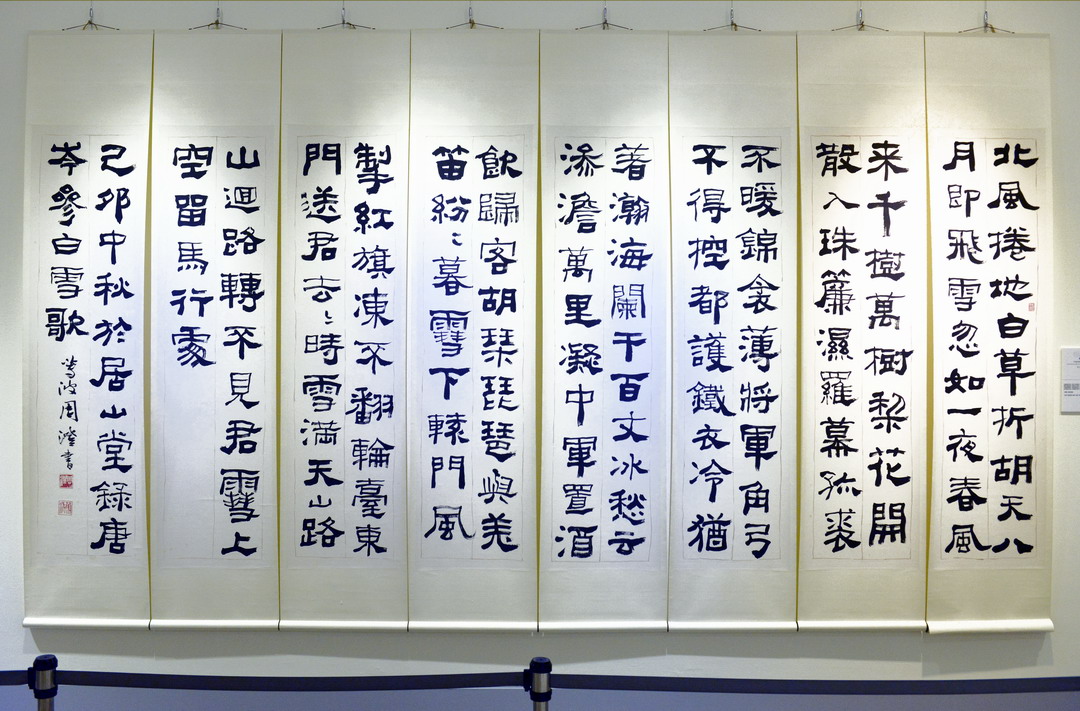 北風捲地白草折胡天八
月即飛雪忽如一夜春風
来千樹萬樹梨花開
散入珠簾濕羅幕狐裘
不暖錦衾薄將軍角弓
不得控都護鐵衣冷猶
著瀚海闌干百丈冰愁云
澹萬里凝中軍置酒
飲歸客胡琴琵琶與羌
笛紛〻暮雪下轅門風
掣紅旗凍不翻輪臺東
門送君去〻時雪満天山路
山迴路轉不見君雪上
空留馬行處
己卯中秋於居山堂録唐
岑參白雪歌
蓴波周澄書